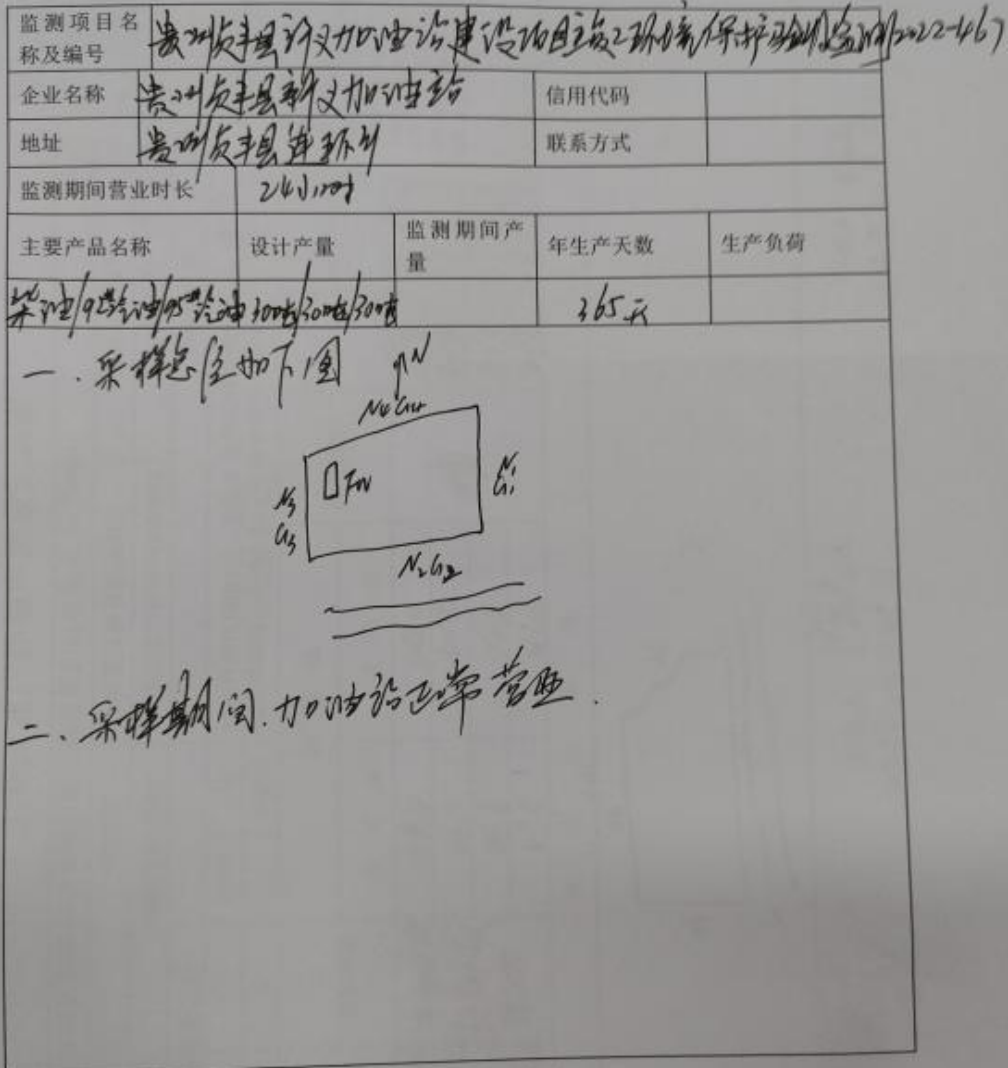 监测项目名称及编号 贵州贞丰县新义加油站建设项目竣工环境保护验收监测2022-467
企业名称 贵州贞丰县新义加油站 信用代码
地址 贵州贞丰县连环 联系方式
监测期间营业时长 24小时
主要产品名称 设计产量 监测期间产量 年生产天数 生产负荷
柴油/92#汽油/95#汽油 300吨/300吨/300吨 365天
一、采样点位如下图 N
N4 G4
N3
G3
N1
G1
N2 G2
二、采样期间,加油站正常营业.